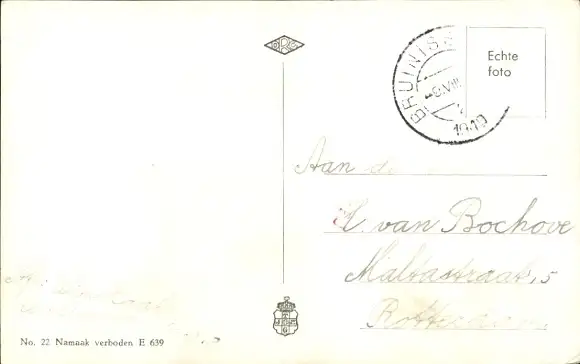 ORG
BRUINISS
-8.VIII
1949
Echte
foto
Aan
K. van Bochove
Maltastraat 5
Rotterdam
No. 22 Namaak verboden E 639